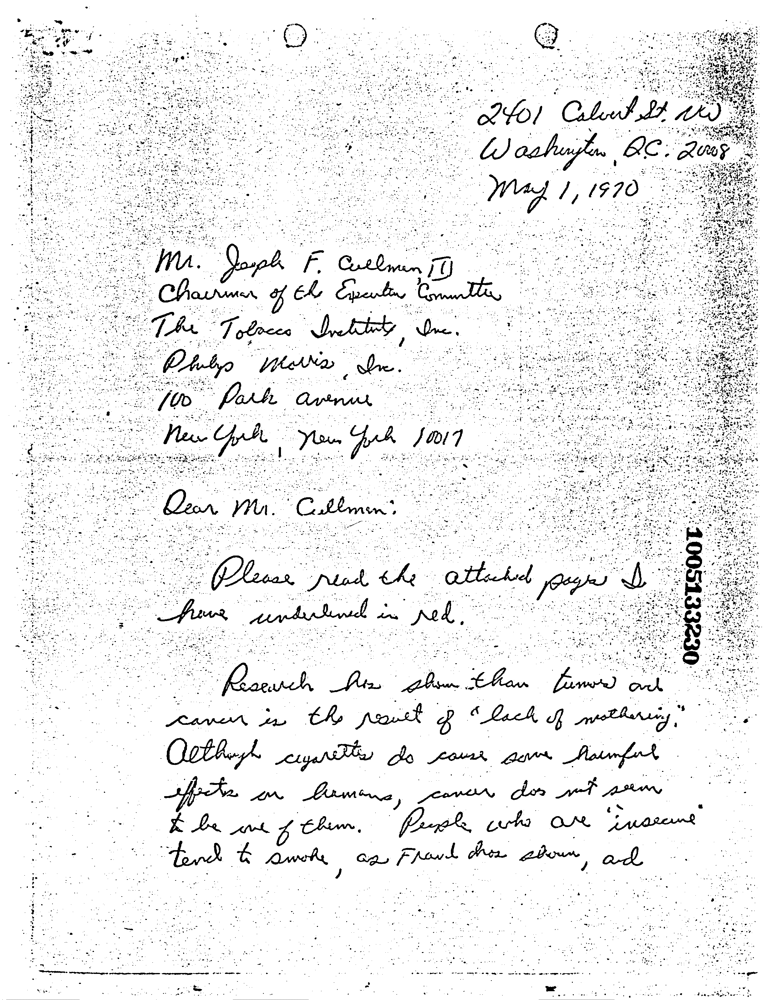 2401 Calvert St. NW
Washington, D.C. 20008
May 1, 1970
Mr. Joseph F. Cullman, III
Chairman of the Executive Committee
The Tobacco Institute, Inc.
Philip Morris, Inc.
100 Park Avenue
New York, New York 10017
Dear Mr. Cullman:
Please read the attached pages I
have underlined in red.
Research has shown than tumors and
cancer is the result of "lack of mothering."
Although cigarettes do cause some harmful
effects on humans, cancer does not seem
to be one of them. People who are "insecure"
tend to smoke, as Freud has shown, and
1005133230